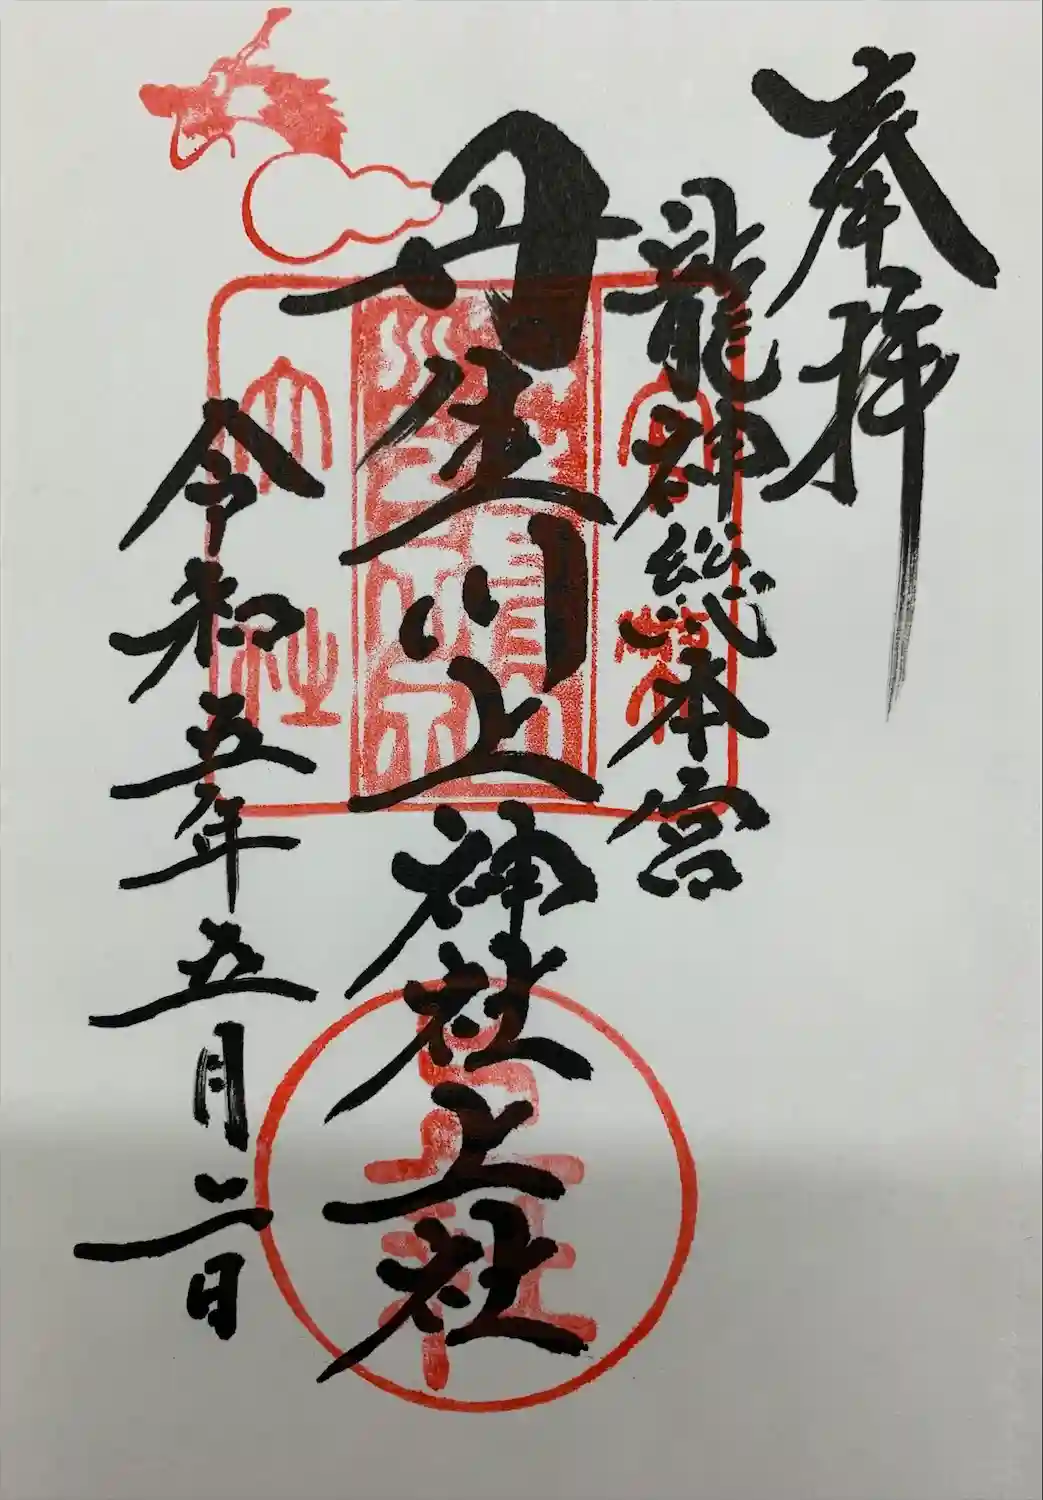 奉拝
龍神総本宮
丹生川上神社上社
令和五年五月二日
上社